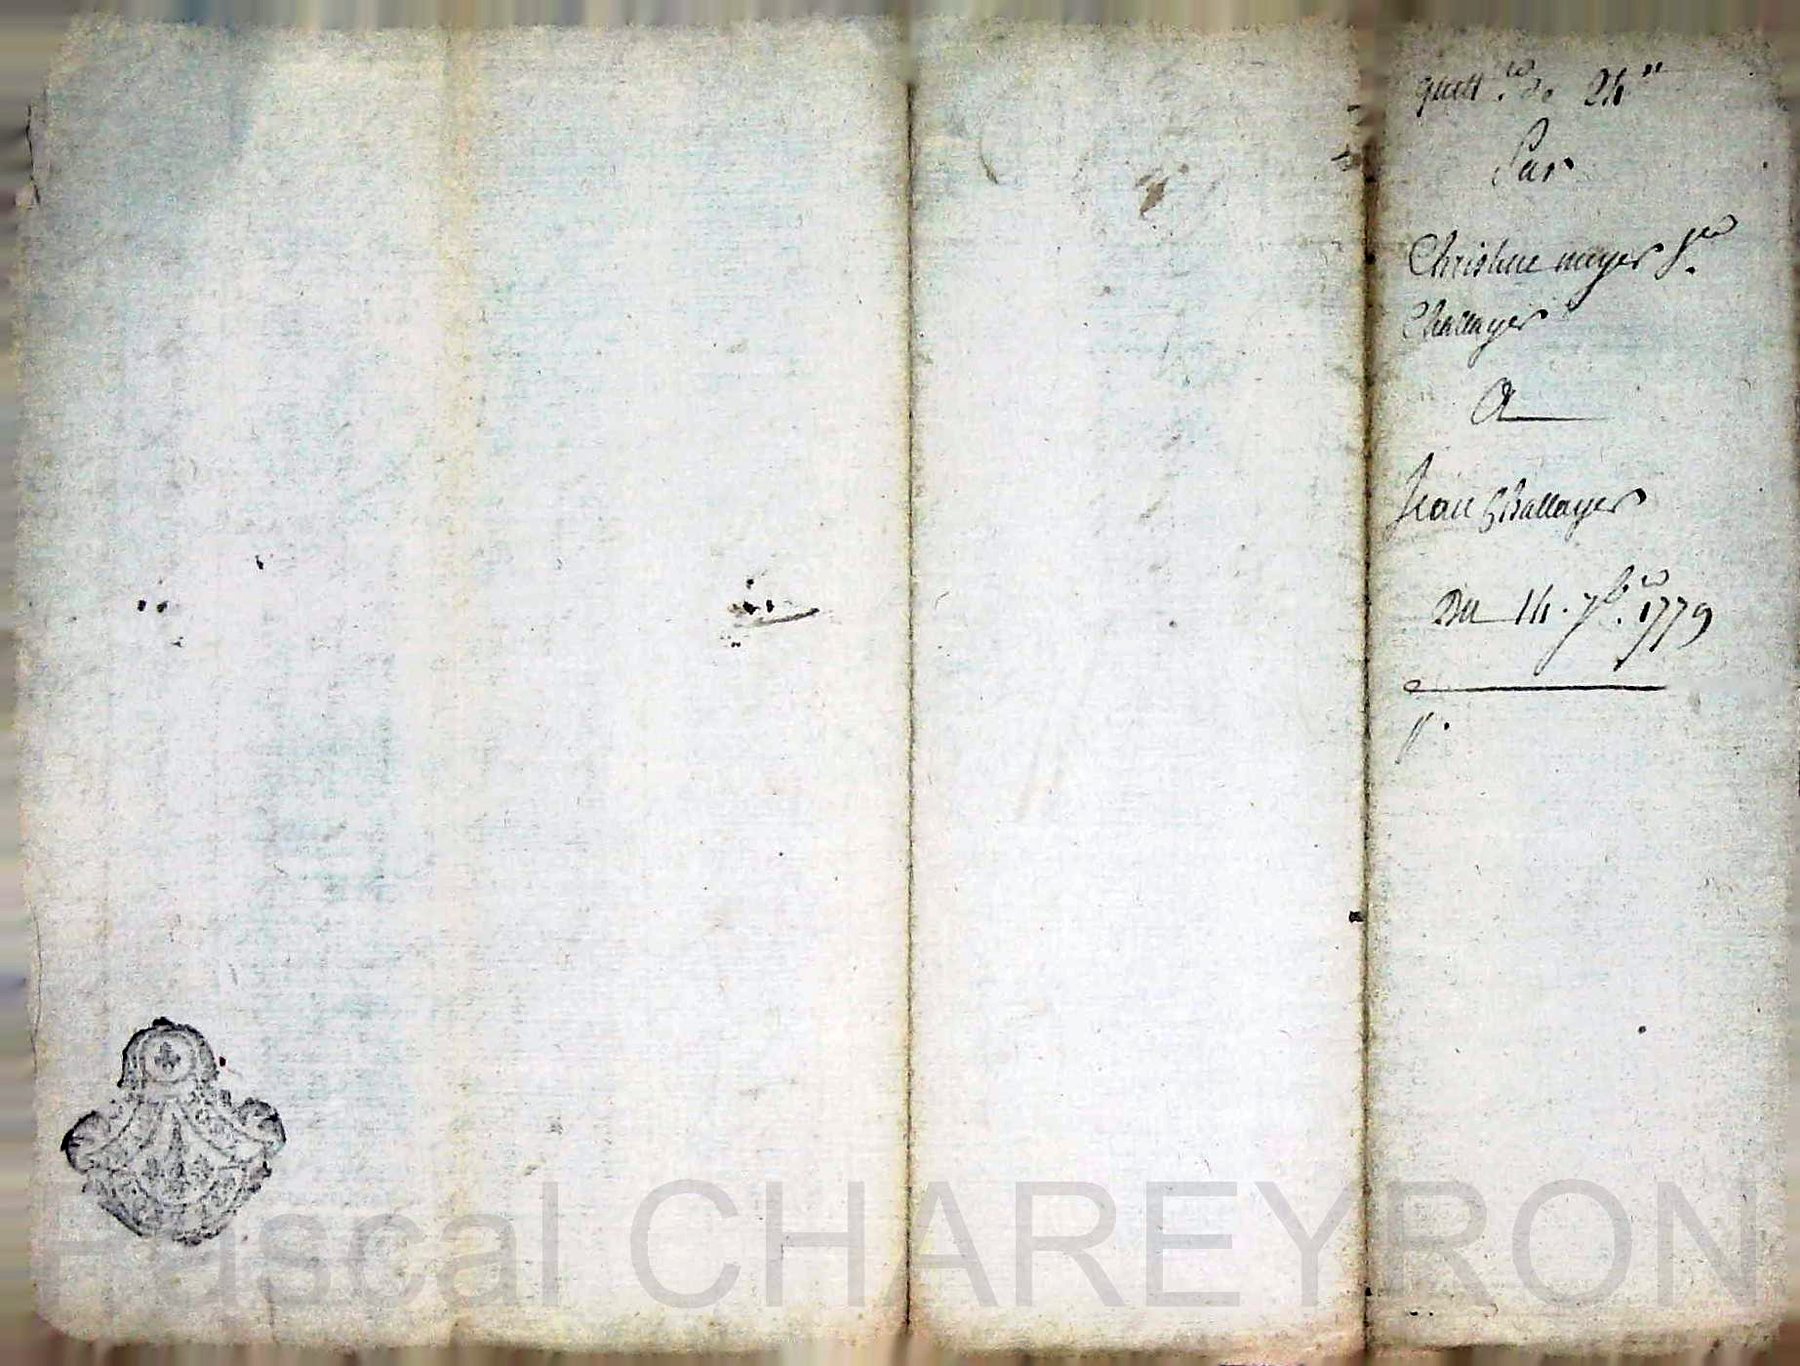 quitt.ce de 24#
Par
Christine meyer
Challayer
A
Jean Challayer
Du 14. 7bre. 1779
Pascal CHAREYRON